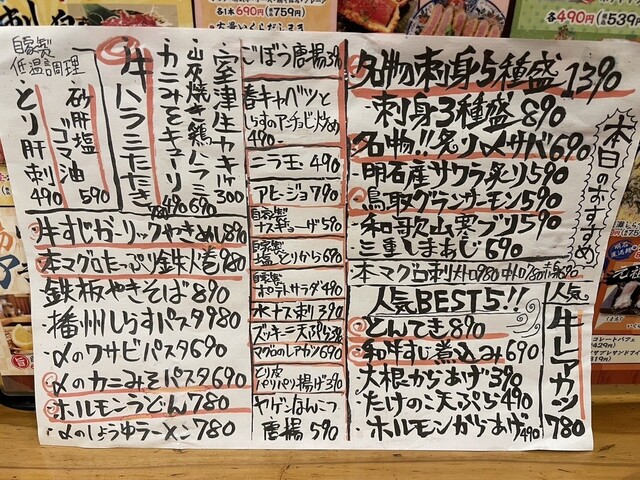 本日のおすすめ
名物刺身5種盛 1390
刺身3種盛 890
名物!!炙り〆サバ 690
明石産サワラ炙り 590
鳥取グランサーモン 590
和歌山 寒ブリ 590
三重しまあじ 690
本マグロ刺
人気BEST5!!
とんてき 890
和牛すじ煮込み 690
大根からあげ 390
たけのこ天ぷら 490
ホルモンからあげ 490
人気
牛レアカツ
780
ごぼう唐揚 390
春キャベツと
しらすのアンチョビ炒め
490
ニラ玉 490
アヒージョ 790
自家製
ナスギョーザ 590
自家製
塩とりから 690
自家製
ポテトサラダ 490
水ナス刺 390
ズッキーニ天ぷら
マグロのレアカツ 690
とり皮
パリパリ揚げ 390
ヤゲンなんこつ
唐揚 590
室津生カキ 1ヶ 300
山炭焼き鶏ハラミ 690
カニみそキューリ 490
牛ハラミたたき
自家製
低温調理
砂肝塩ゴマ油 590
とり肝刺 490
牛すじガーリックやきめし 890
本マグロたっぷり鉄火巻 980
鉄板やきそば 890
播州しらすパスタ 980
〆のワサビパスタ 690
〆のカニみそパスタ 690
ホルモンうどん 780
〆のしょうゆラーメン 780
各1本 690円
(税込759円)
各490円